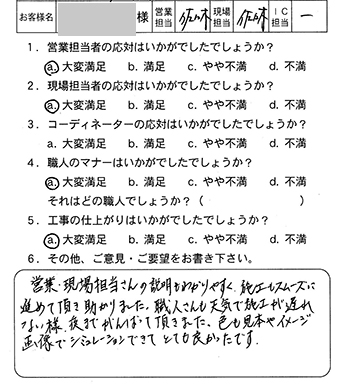 お客様名 様 営業担当 佐々木 現場担当 佐々木 IC担当 ー
1．営業担当者の応対はいかがでしたでしょうか？
a. 大変満足 b. 満足 c. やや不満 d. 不満
2．現場担当者の応対はいかがでしたでしょうか？
a. 大変満足 b. 満足 c. やや不満 d. 不満
3．コーディネーターの応対はいかがでしたでしょうか？
a. 大変満足 b. 満足 c. やや不満 d. 不満
4．職人のマナーはいかがでしたでしょうか？
a. 大変満足 b. 満足 c. やや不満 d. 不満
それはどの職人でしょうか？（ ）
5．工事の仕上がりはいかがでしたでしょうか？
a. 大変満足 b. 満足 c. やや不満 d. 不満
6．その他、ご意見・ご要望をお書き下さい。
営業・現場担当さんの説明もわかりやすく、施工もスムーズに
進めて頂き助かりました。職人さんも天気で施工が遅れ
ない様、夜までがんばって頂きました。色も見本やイメージ
画像でシミュレーションできてとても良かったです。